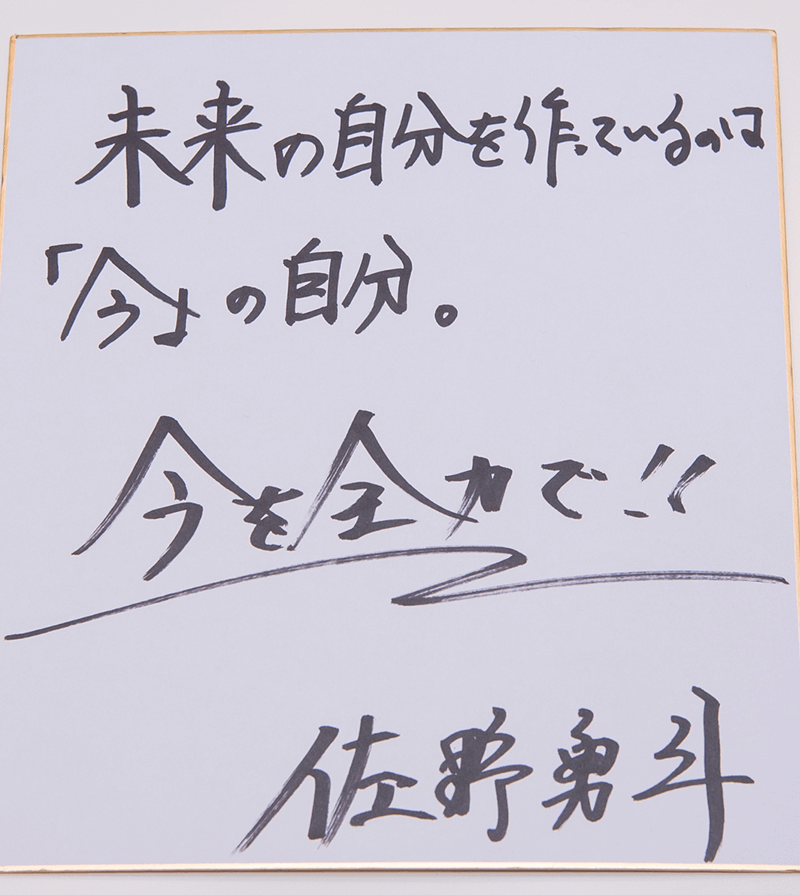 未来の自分を作っているのは
「今」の自分。
今を全力で!!
佐野勇斗